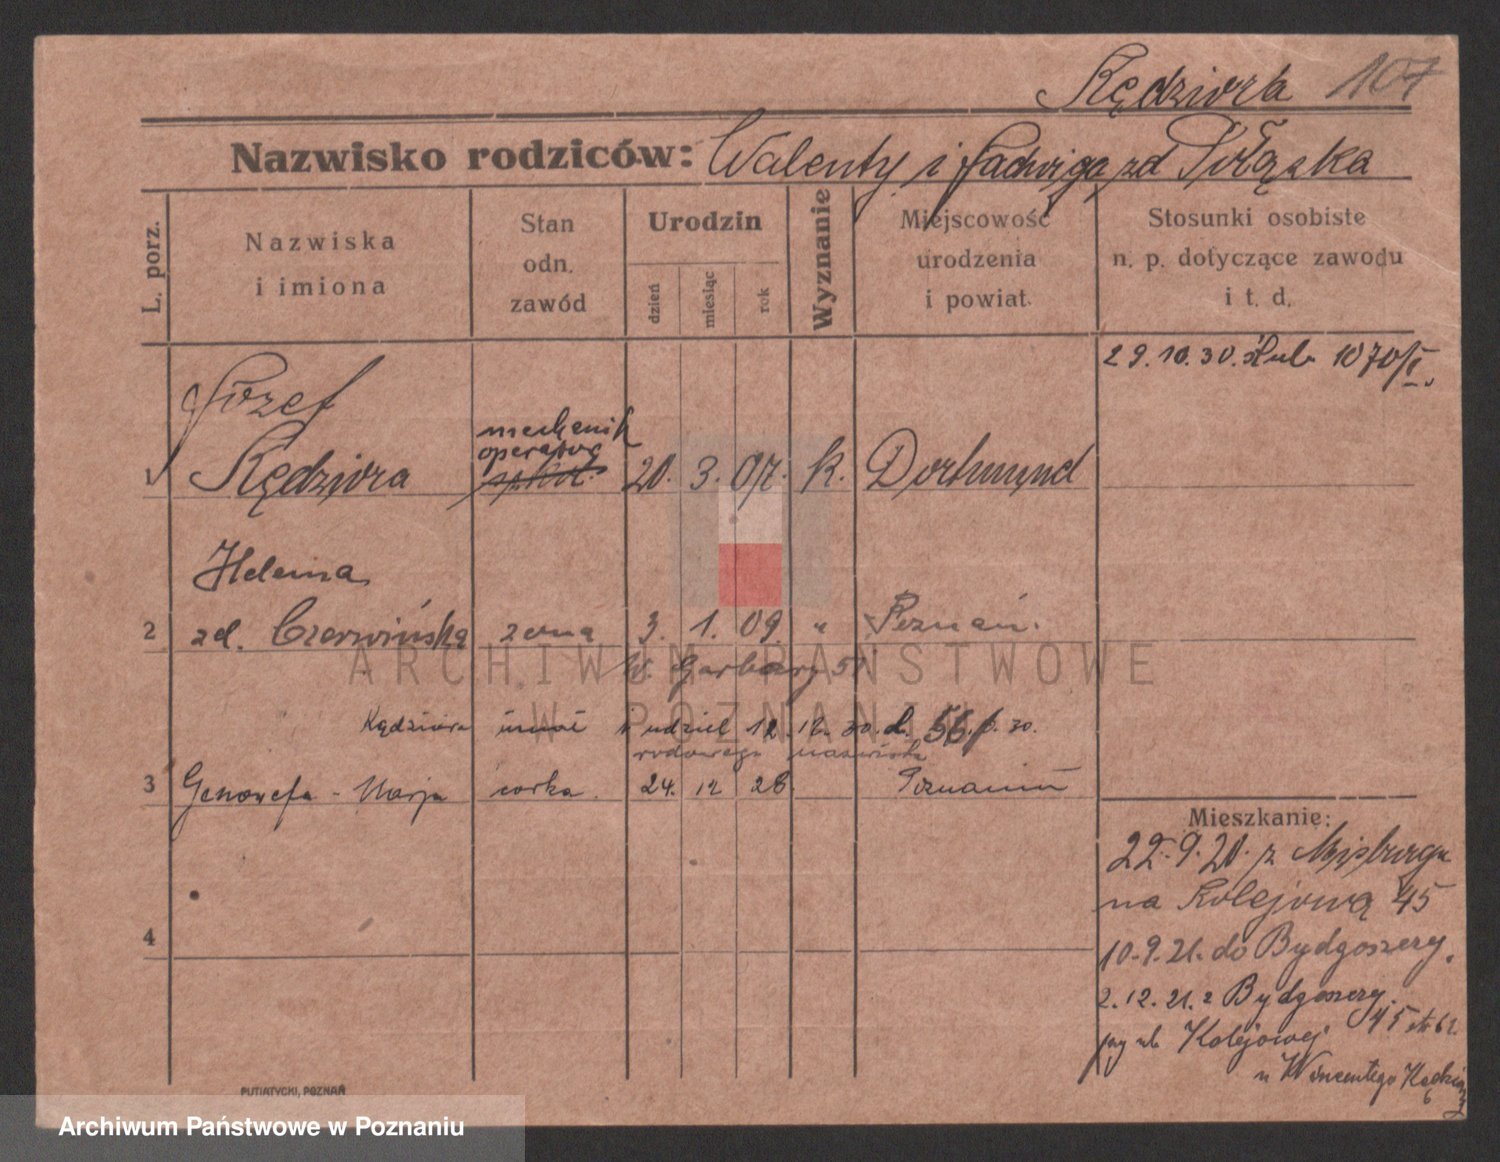 Kędziora 107
Nazwisko rodziców: Walenty i Jadwiga zd
L. porz.
Nazwiska
i imiona
Stan
odn.
zawód
Urodzin
dzień
miesiąc
rok
Wyznanie
Miejscowość
urodzenia
i powiat.
Stosunki osobiste
n. p. dotyczące zawodu
i t. d.
29.10.30. ślub 1070/I.
Józef
mechanik
operator
1 Kędziora 20. 3. 07. k. Dortmund
Helena
2 zd. Czerwińska żona 3. 1. 09. " Poznań.
W. Garbary 51
Kędziora 12. 12. 30. 30.
rodowego nazwiska
3 Genowefa - Marja córka. 24. 12 28 Poznaniu
4
Mieszkanie:
22.9.20. z
na Kolejową 45
10.9.21. do Bydgoszczy.
2.12.21. z Bydgoszczy.
Kolejowej 45
u Wincentego Kędziory
PUTIATYCKI, POZNAŃ
ARCHIWUM PAŃSTWOWE
W POZNANIU
Archiwum Państwowe w Poznaniu